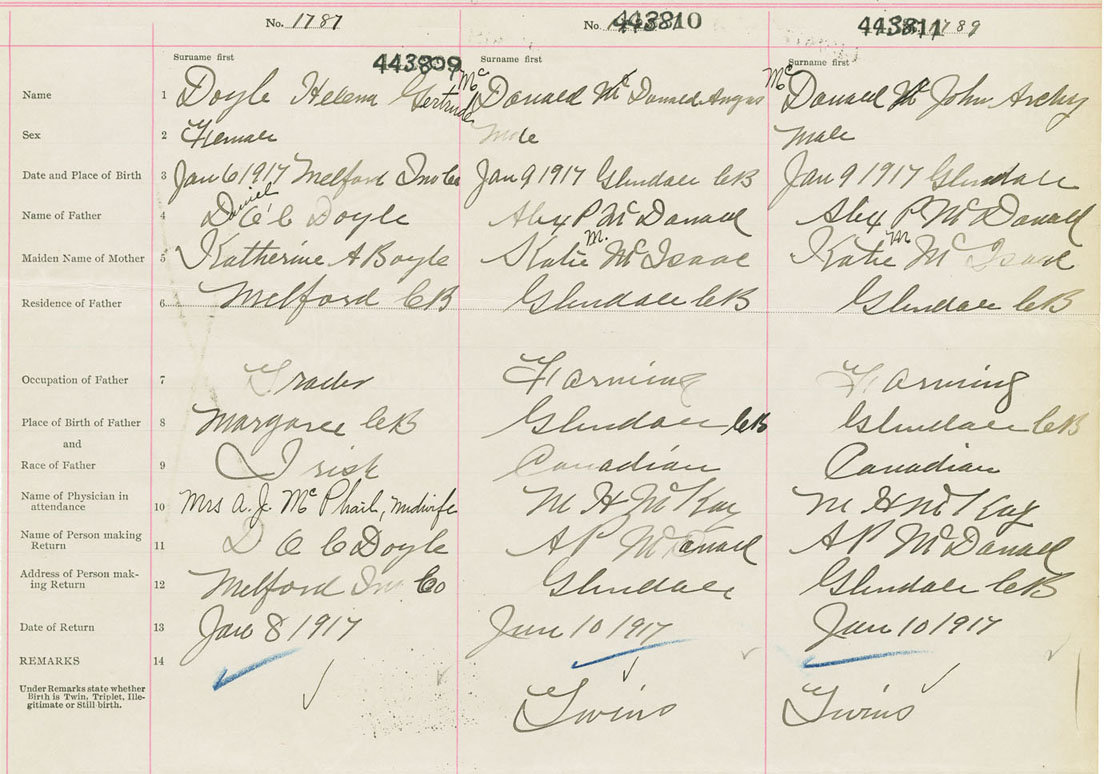 No. 1787
No. 443810
443811 1789
Surname first
443809
Surname first
Surname first
Name 1 Doyle Helena Gertrude
McDonald Mc Donald Angus
McDonald Mc John Archy
Sex 2 Female
Male
Male
Date and Place of Birth 3 Jan 6 1917 Melford Inv Co
Jan 9 1917 Glendale CB
Jan 9 1917 Glendale
Name of Father 4 Daniel C C Doyle
Alex P McDonald
Alex P McDonald
Maiden Name of Mother 5 Katherine A Boyle
Katie M. McIsaac
Katie M McIsaac
Residence of Father 6 Melford CB
Glendale CB
Glendale CB
Occupation of Father 7 Trader
Farming
Farming
Place of Birth of Father 8 Margaree CB
Glendale CB
Glendale CB
and
Race of Father 9 Irish
Canadian
Canadian
Name of Physician in
attendance 10 Mrs A. J. McPhail, Midwife
M H McKay
M H McKay
Name of Person making
Return 11 D C C Doyle
A P McDonald
A P McDonald
Address of Person mak-
ing Return 12 Melford Inv Co
Glendale
Glendale CB
Date of Return 13 Jan 8 1917
Jan 10 1917
Jan 10 1917
REMARKS 14
Under Remarks state whether
Birth is Twin, Triplet, Ille-
gitimate or Still birth.
Twins
Twins